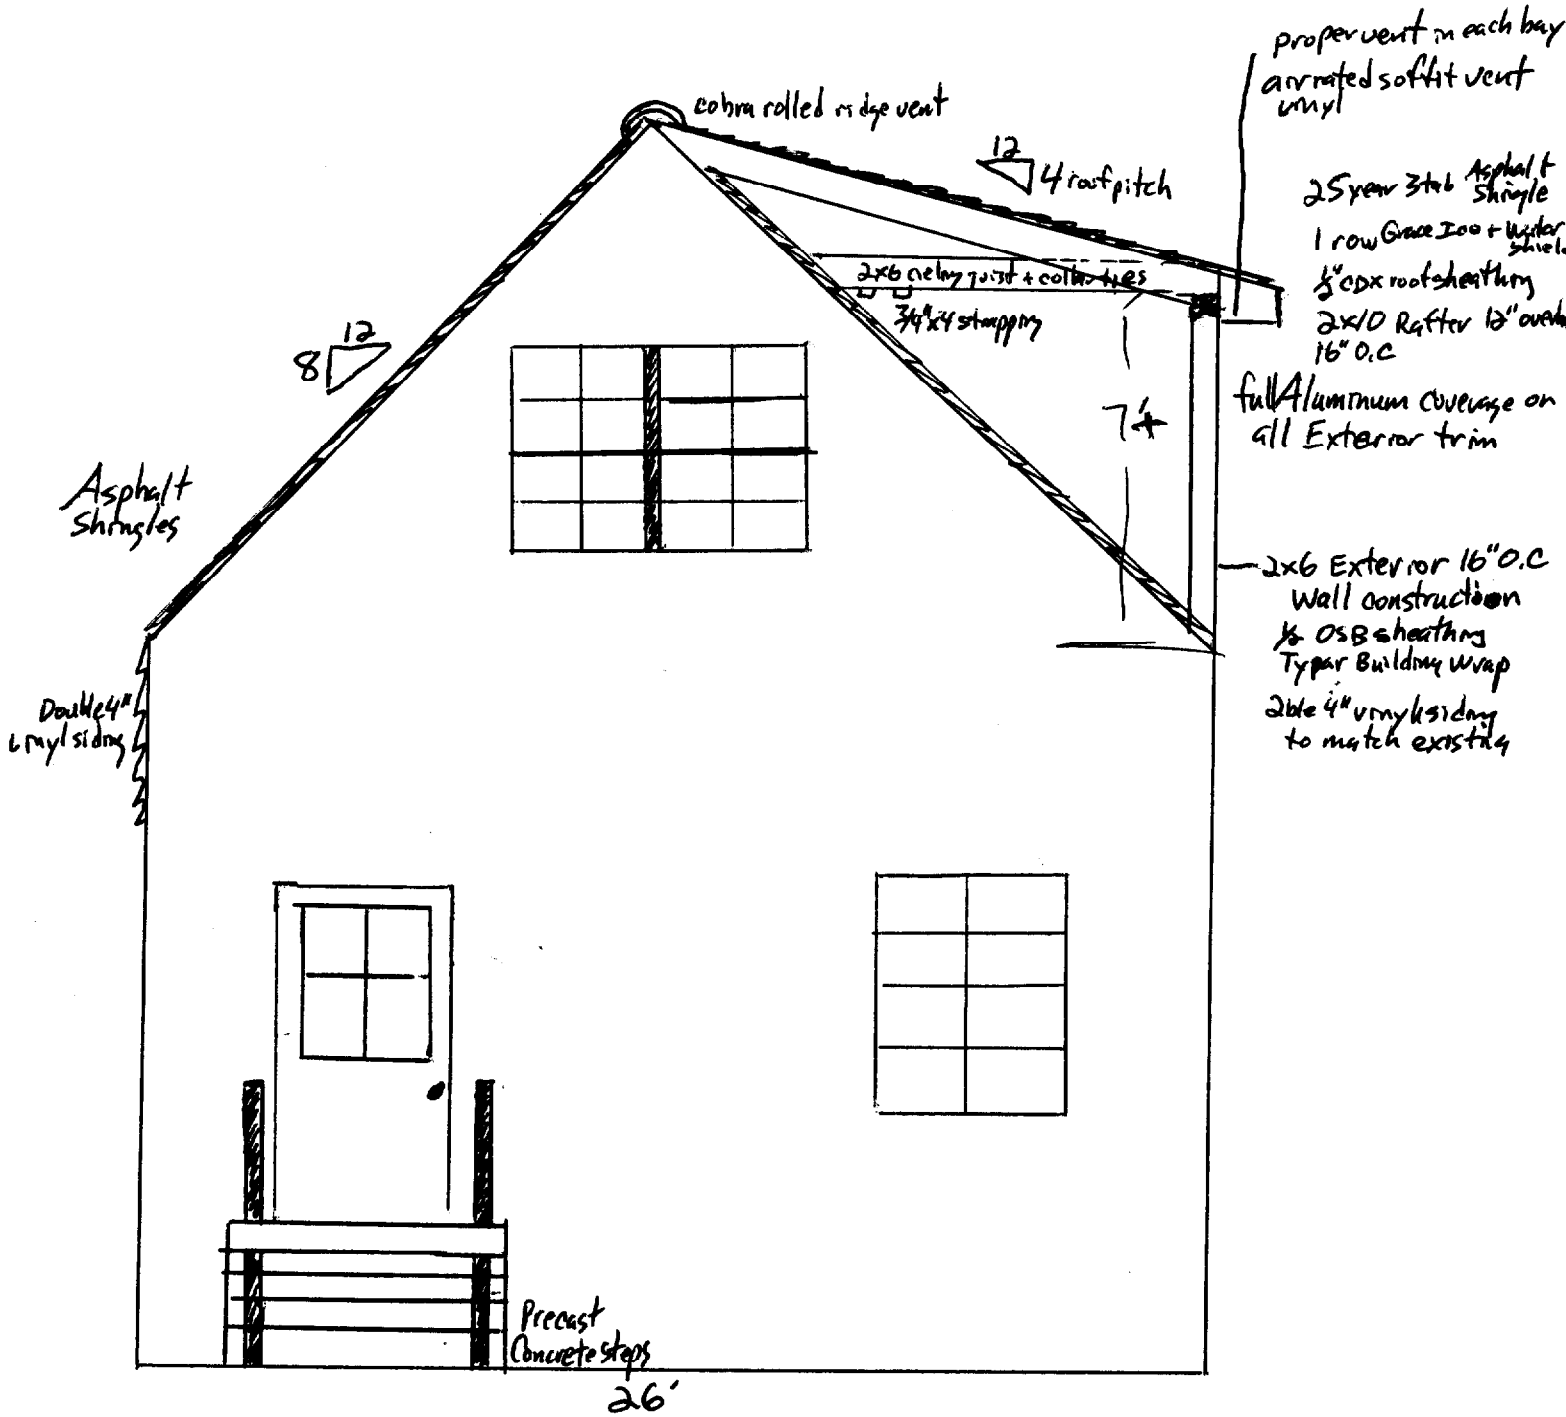 proper vent in each bay
airrated soffit vent
vinyl
cobra rolled ridge vent
12
4 roof pitch
25 year 3 tab Asphalt
Shingle
1 row Grace Ice + Water
Shield
1/2" CDX roof sheathing
2x10 Rafter 12" overh
16" O.C
2x6 cieling joist + collar ties
3/4"x4 strapping
12
8
7'+
full Aluminum coverage on
all Exterior trim
Asphalt
Shingles
2x6 Exterior 16" O.C
Wall construction
1/2 OSB sheathing
Typar Building Wrap
2ble 4" vinyl siding
to match existing
Double 4"
vinyl siding
Precast
Concrete steps
26'